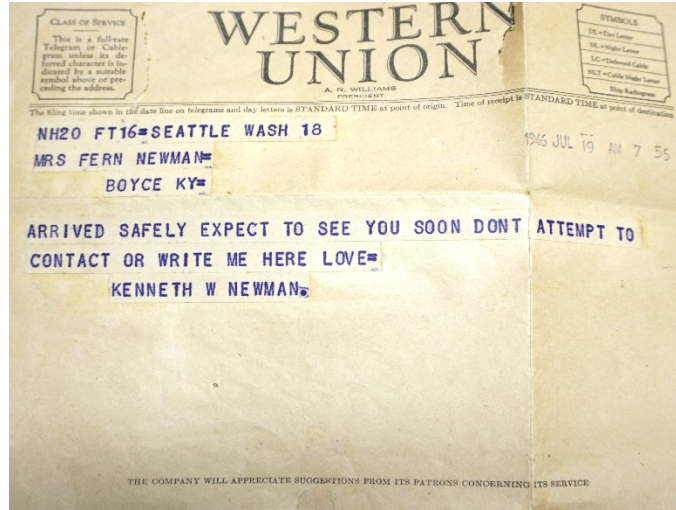 CLASS OF SERVICE
This is a full-rate
Telegram or Cable-
gram unless its de-
ferred character is in-
dicated by a suitable
symbol above or pre-
ceding the address.
WESTERN
UNION
A. N. WILLIAMS
PRESIDENT
SYMBOLS
DL=Day Letter
NL=Night Letter
LC=Deferred Cable
NLT=Cable Night Letter
Ship Radiogram
The filing time shown in the date line on telegrams and day letters is STANDARD TIME at point of origin. Time of receipt is STANDARD TIME at point of destination
NH20 FT16=SEATTLE WASH 18
1946 JUL 19 AM 7 55
MRS FERN NEWMAN=
BOYCE KY=
ARRIVED SAFELY EXPECT TO SEE YOU SOON DONT ATTEMPT TO
CONTACT OR WRITE ME HERE LOVE=
KENNETH W NEWMAN.
THE COMPANY WILL APPRECIATE SUGGESTIONS FROM ITS PATRONS CONCERNING ITS SERVICE